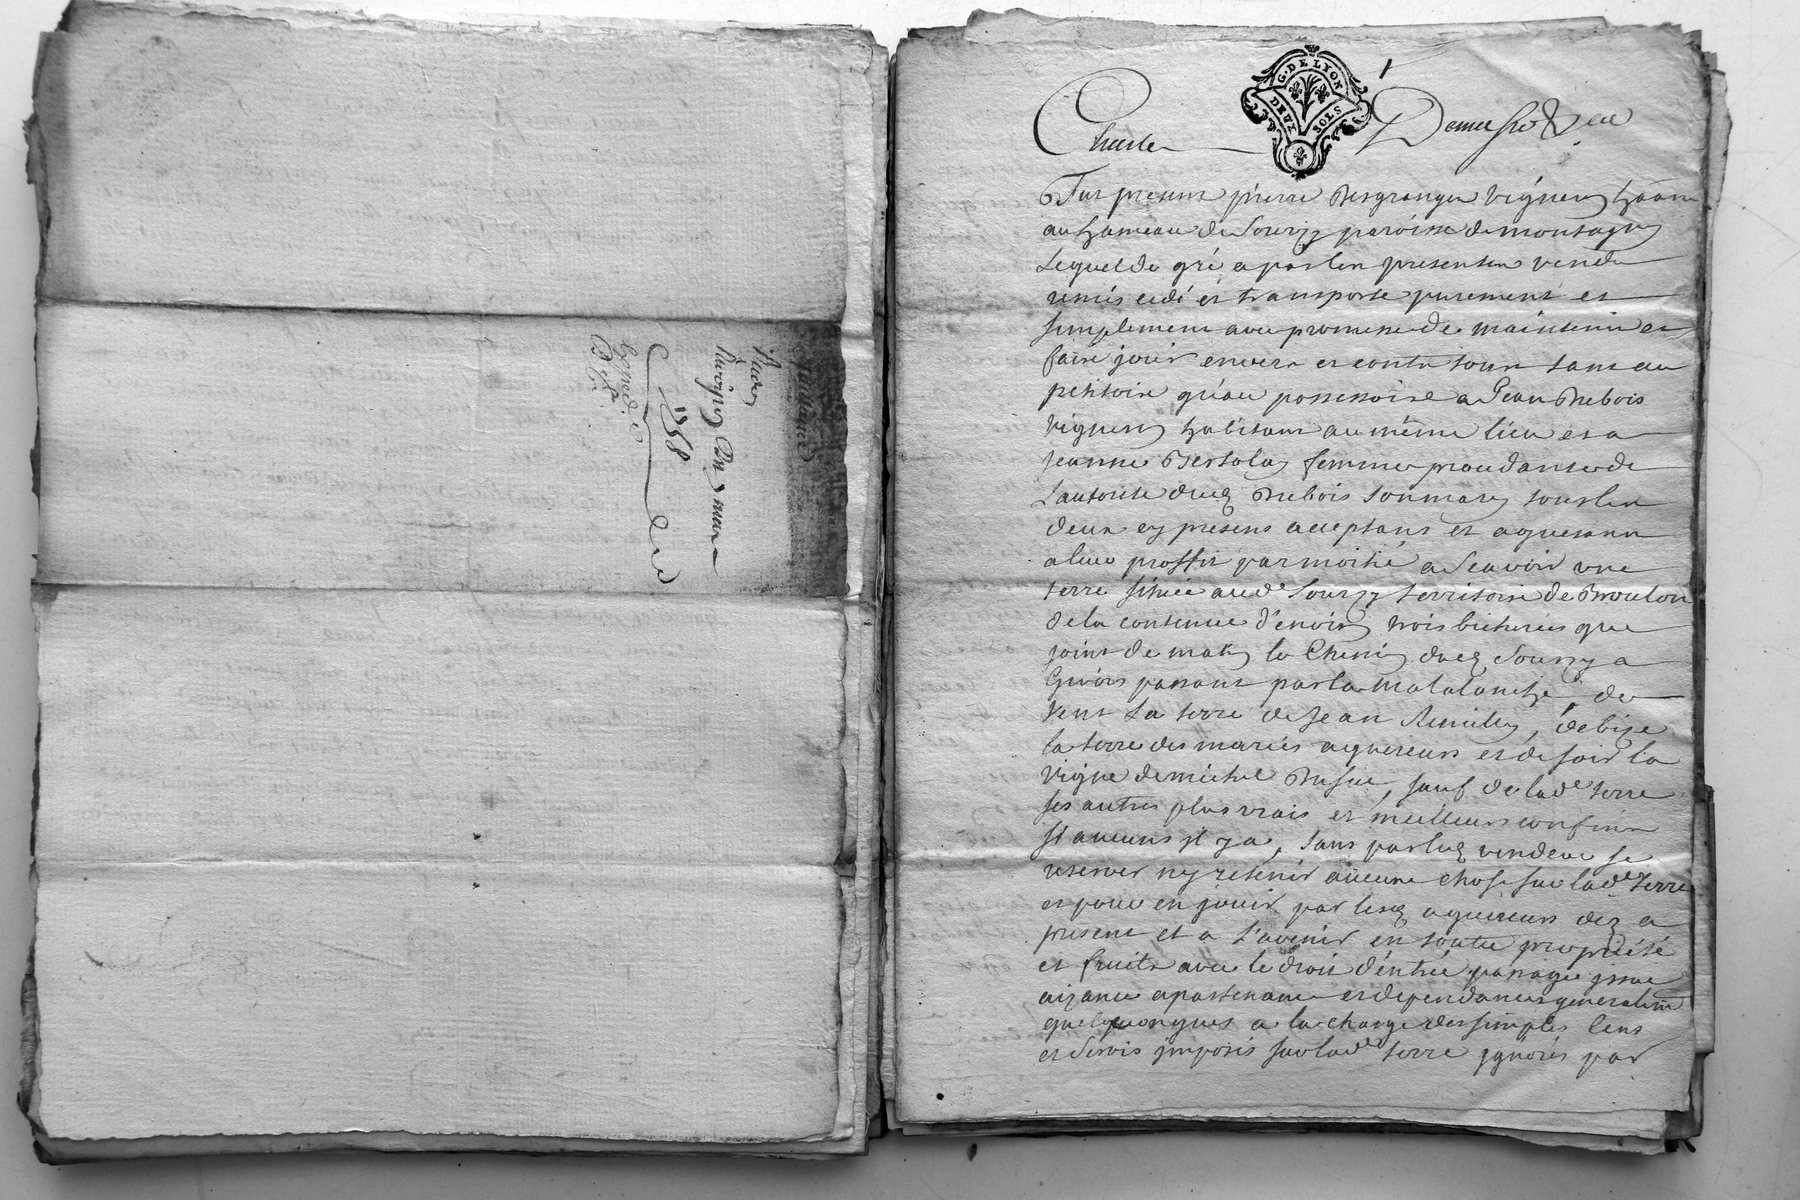 1758
G. DE LYON
DEUX SOLS
Charles
Fut present pierre Desgranges vigneron
au hameau de Sourzy paroisse de montagny
Lequel de gré a par les presentes vendu
remis cedé et transporté purement et
simplement avec promesse de maintenir et
faire jouir envers et contre tous tant au
petitoire qu'au possessoire a Jean Dubois
vigneron habitant au même lieu et a
Jeanne femme de
L'autorité dud Dubois son mary tous les
deux cy presens acceptans et aquereurs
a leur proffit par moitié a Scavoir une
terre située aud Sourzy territoire de
de la contenue d'environ trois bicherées que
joint de matin le Chemin dud Sourzy a
Givors passant par la de
vent La terre de Jean de bize
la terre des mariés aquereurs et de soir la
vigne de michel sauf de lade terre
ses autres plus vrais et meilleurs confins
si aucuns il y a, Sans par led vendeur se
reserver ny retenir aucune chose sur lade Terre
et pour en jouir par lesd aquereurs dez a
present et a L'avenir en toutte propriété
et fruits avec le droit d'éntrée passage issue
aizance apartenance et dependances generalemt
quelquonques a la charge des simples Cens
et Servis jmposés sur lade terre jgnorés par